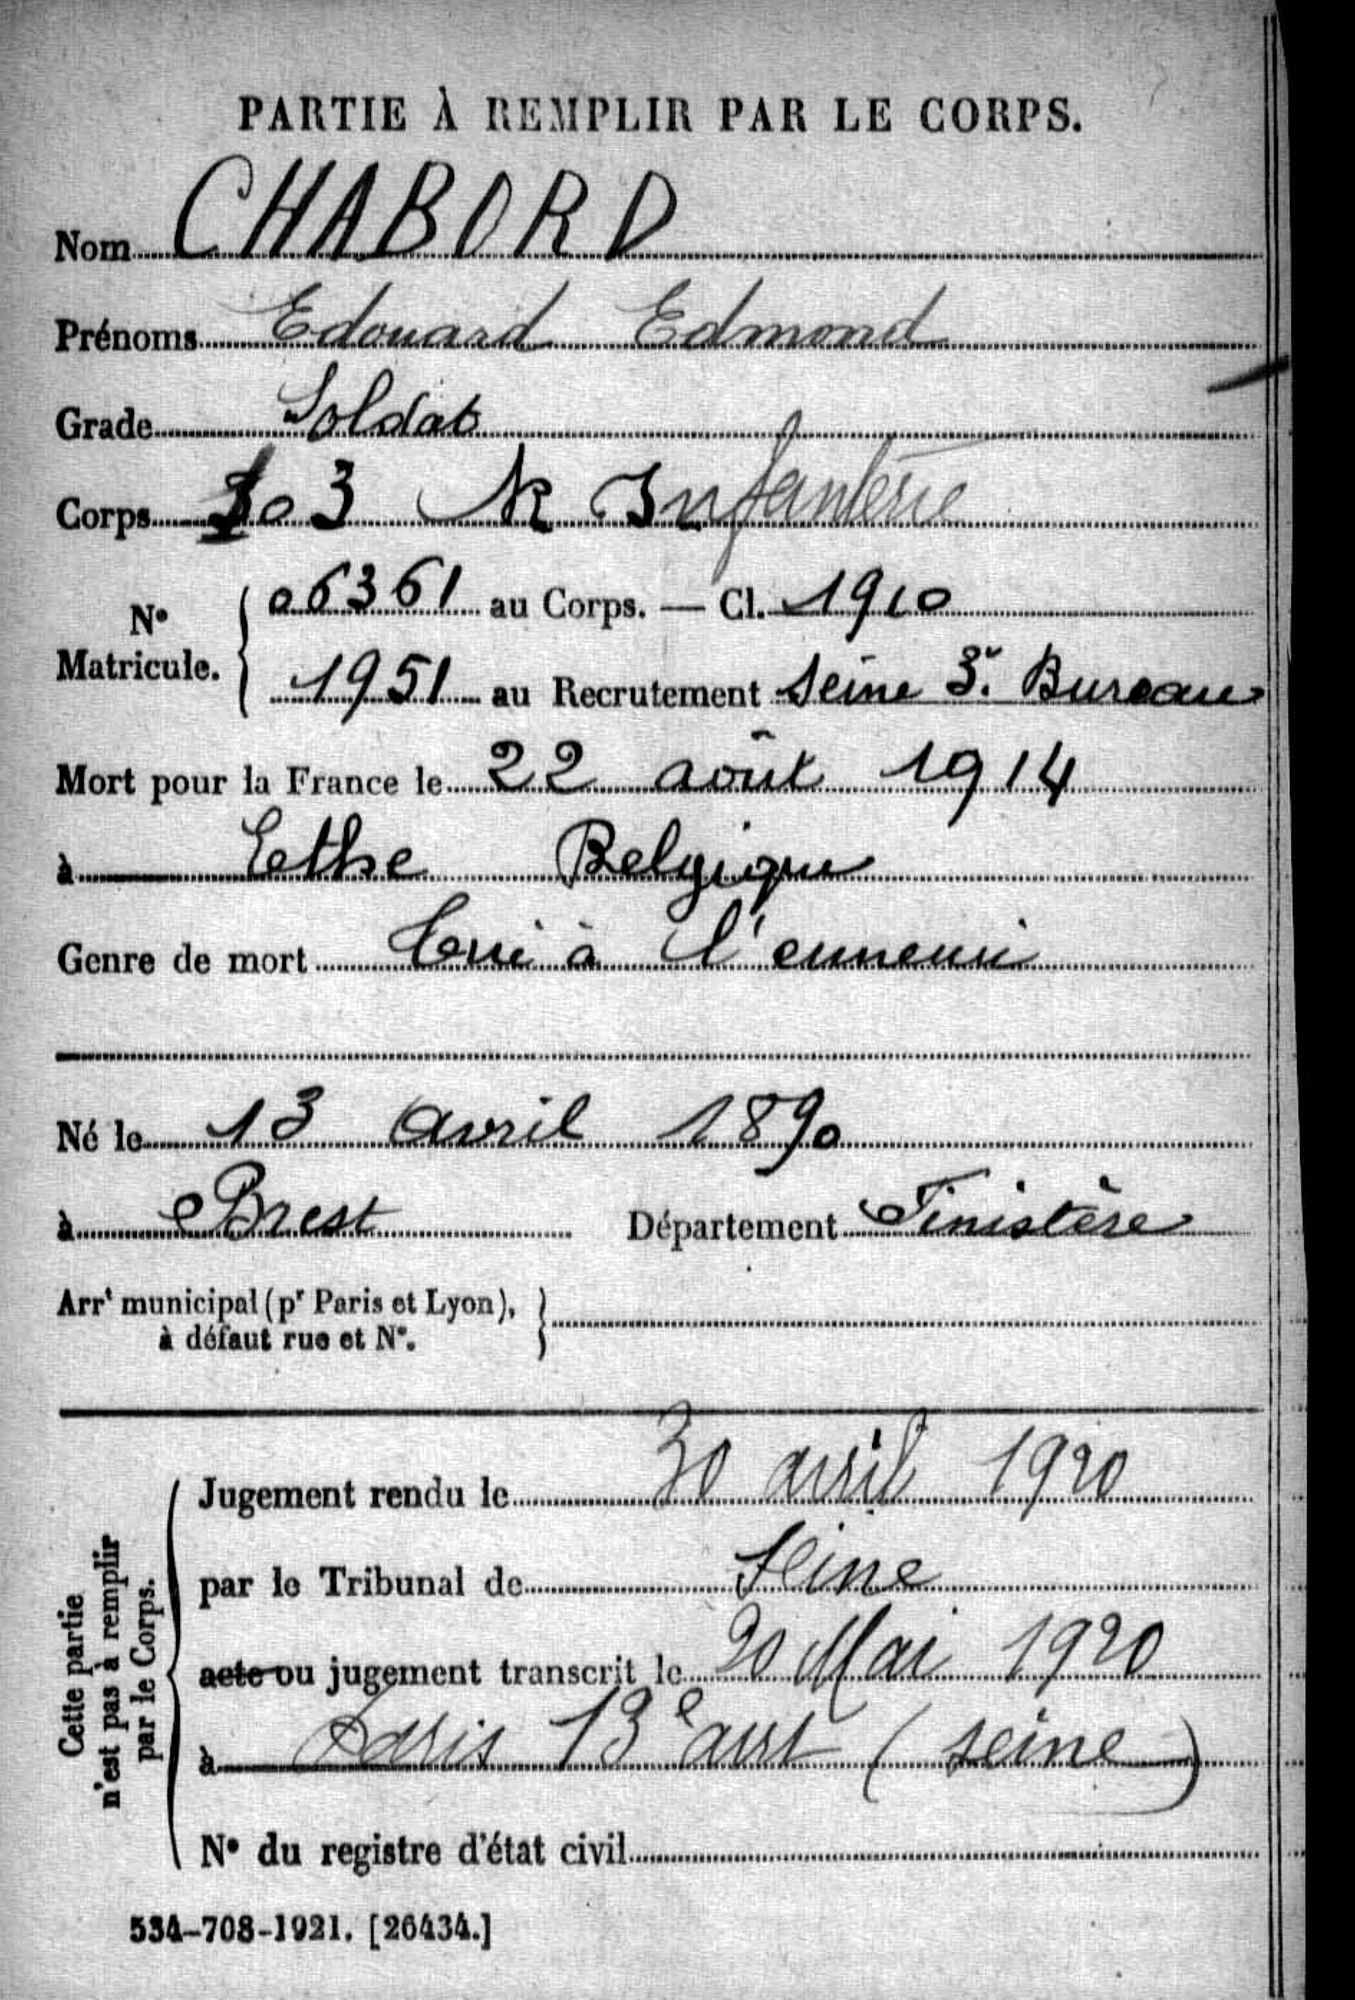 PARTIE À REMPLIR PAR LE CORPS.
Nom CHABORD
Prénoms Edouard Edmond
Grade Soldat
Corps 103 R Infanterie
N° Matricule. 06361 au Corps. — Cl. 1910
1951 au Recrutement Seine 3e Bureau
Mort pour la France le 22 août 1914
à Ethe Belgique
Genre de mort tué à l'ennemi
Né le 13 avril 1890
à Brest Département Finistère
Arrt municipal (pr Paris et Lyon),
à défaut rue et N°.
Cette partie
n'est pas à remplir
par le Corps.
Jugement rendu le 30 avril 1920
par le Tribunal de Seine
acte ou jugement transcrit le 20 Mai 1920
à Paris 13e arrt (Seine)
N° du registre d'état civil
534-708-1921. [26434.]